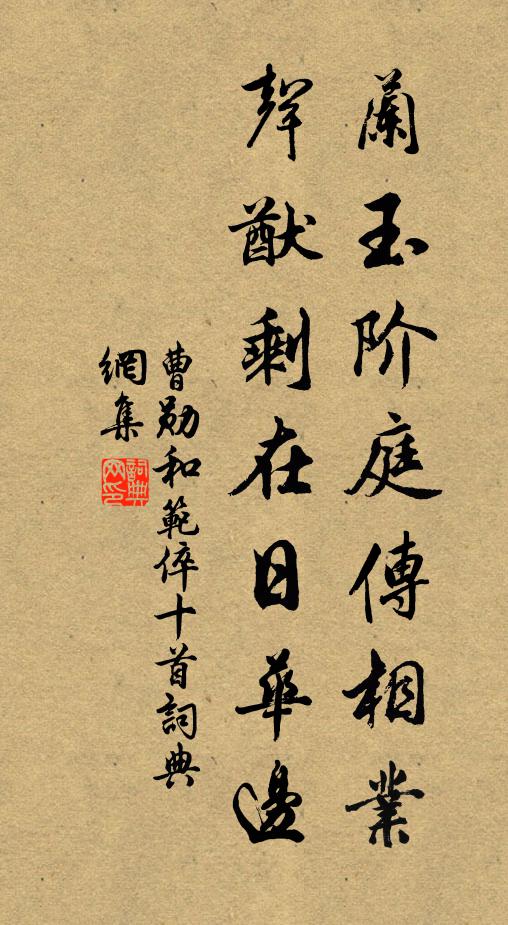 蘭玉阶庭傳相業
聲猷剩在日華邊
曹勋和範倅十首詞典
網集
詞典網印